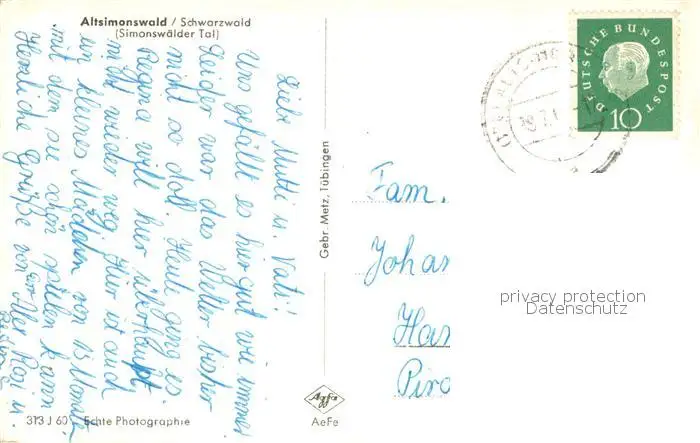 Altsimonswald / Schwarzwald
(Simonswälder Tal)
Liebe Mutti u. Vati!
Uns gefällt es hier gut wie immer
Leider war das Wetter bisher
nicht so doll. Heute ging es.
Regina will hier überhaupt
nicht wieder weg. Hier ist auch
ein kleines Mädchen von 13 Monate
mit dem sie schön spielen kann
Herzliche Grüße von Rosi u.
Gebr. Metz, Tübingen
DEUTSCHE BUNDESPOST
10
Fam.
Johan
Han
Piro
privacy protection
Datenschutz
Agfa
AeFe
313 J 60 Echte Photographie